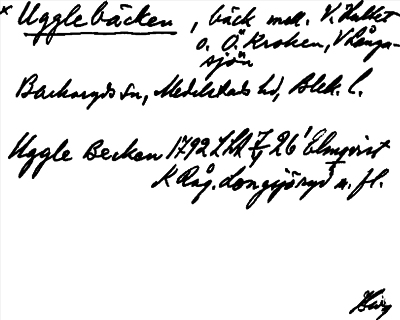 x Ugglebäcken, bäck mell. V. Hallet
o. Ö. Kroken, V Långa-
sjön
Backaryds sn, Medelstads hd, Blek. l.
Uggle Becken 1792 LSA Z 26¹ Elmqvist
K Råg. Longsjöryd m. fl.